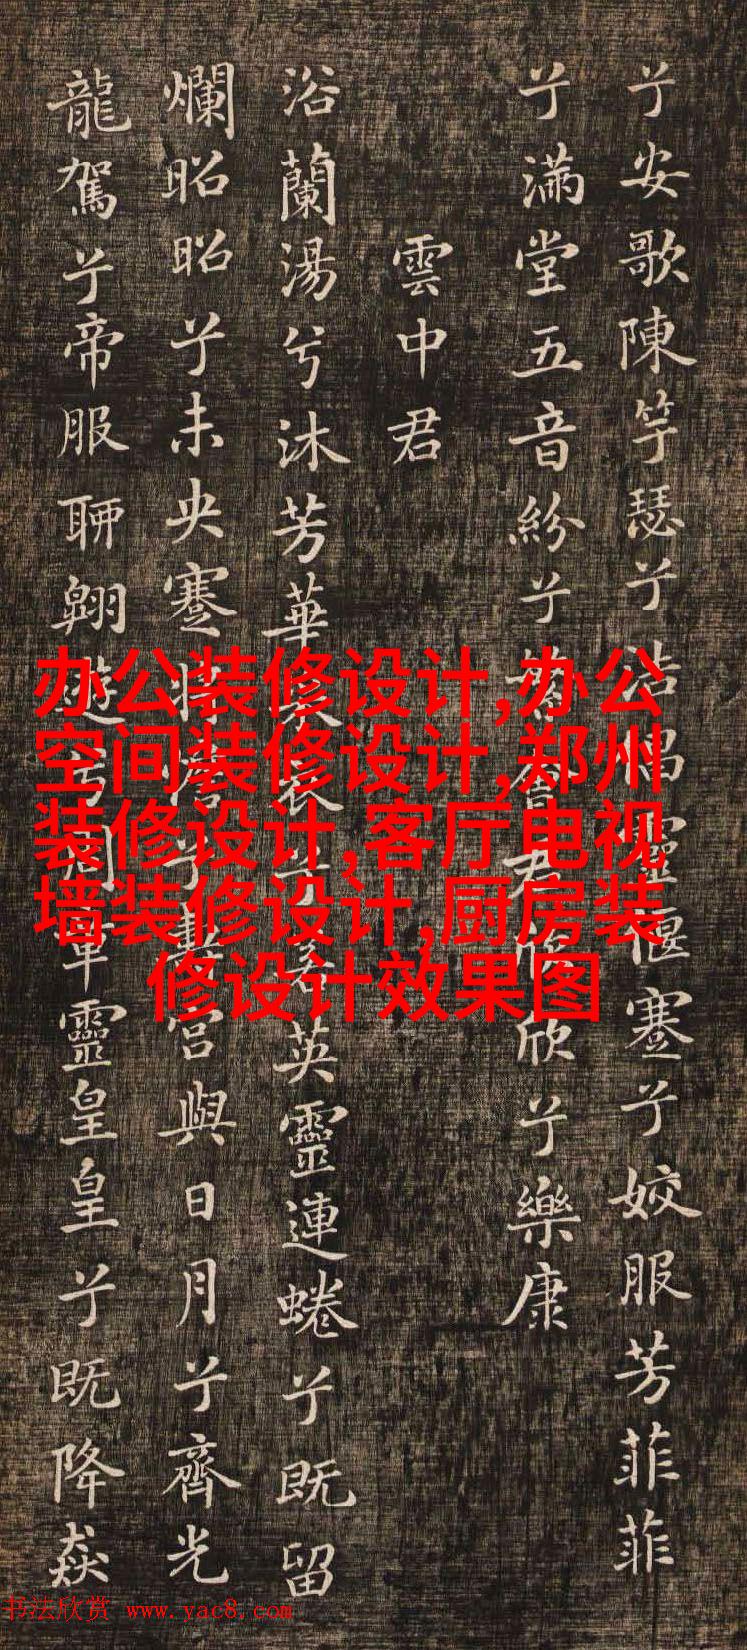 兮安歌陳竽瑟兮浩倡靈偃蹇兮姣服芳菲菲
兮滿堂五音紛兮繁會君欣欣兮樂康
雲中君
浴蘭湯兮沐芳華采衣兮若英靈連蜷兮既留
爛昭昭兮未央蹇將憺兮壽宮與日月兮齊光
龍駕兮帝服聊翱遊兮周章靈皇皇兮既降猋
办公装修设计,办公
空间装修设计,郑州
装修设计,客厅电视
墙装修设计,厨房装
修设计效果图
书法欣赏 www.yac8.com